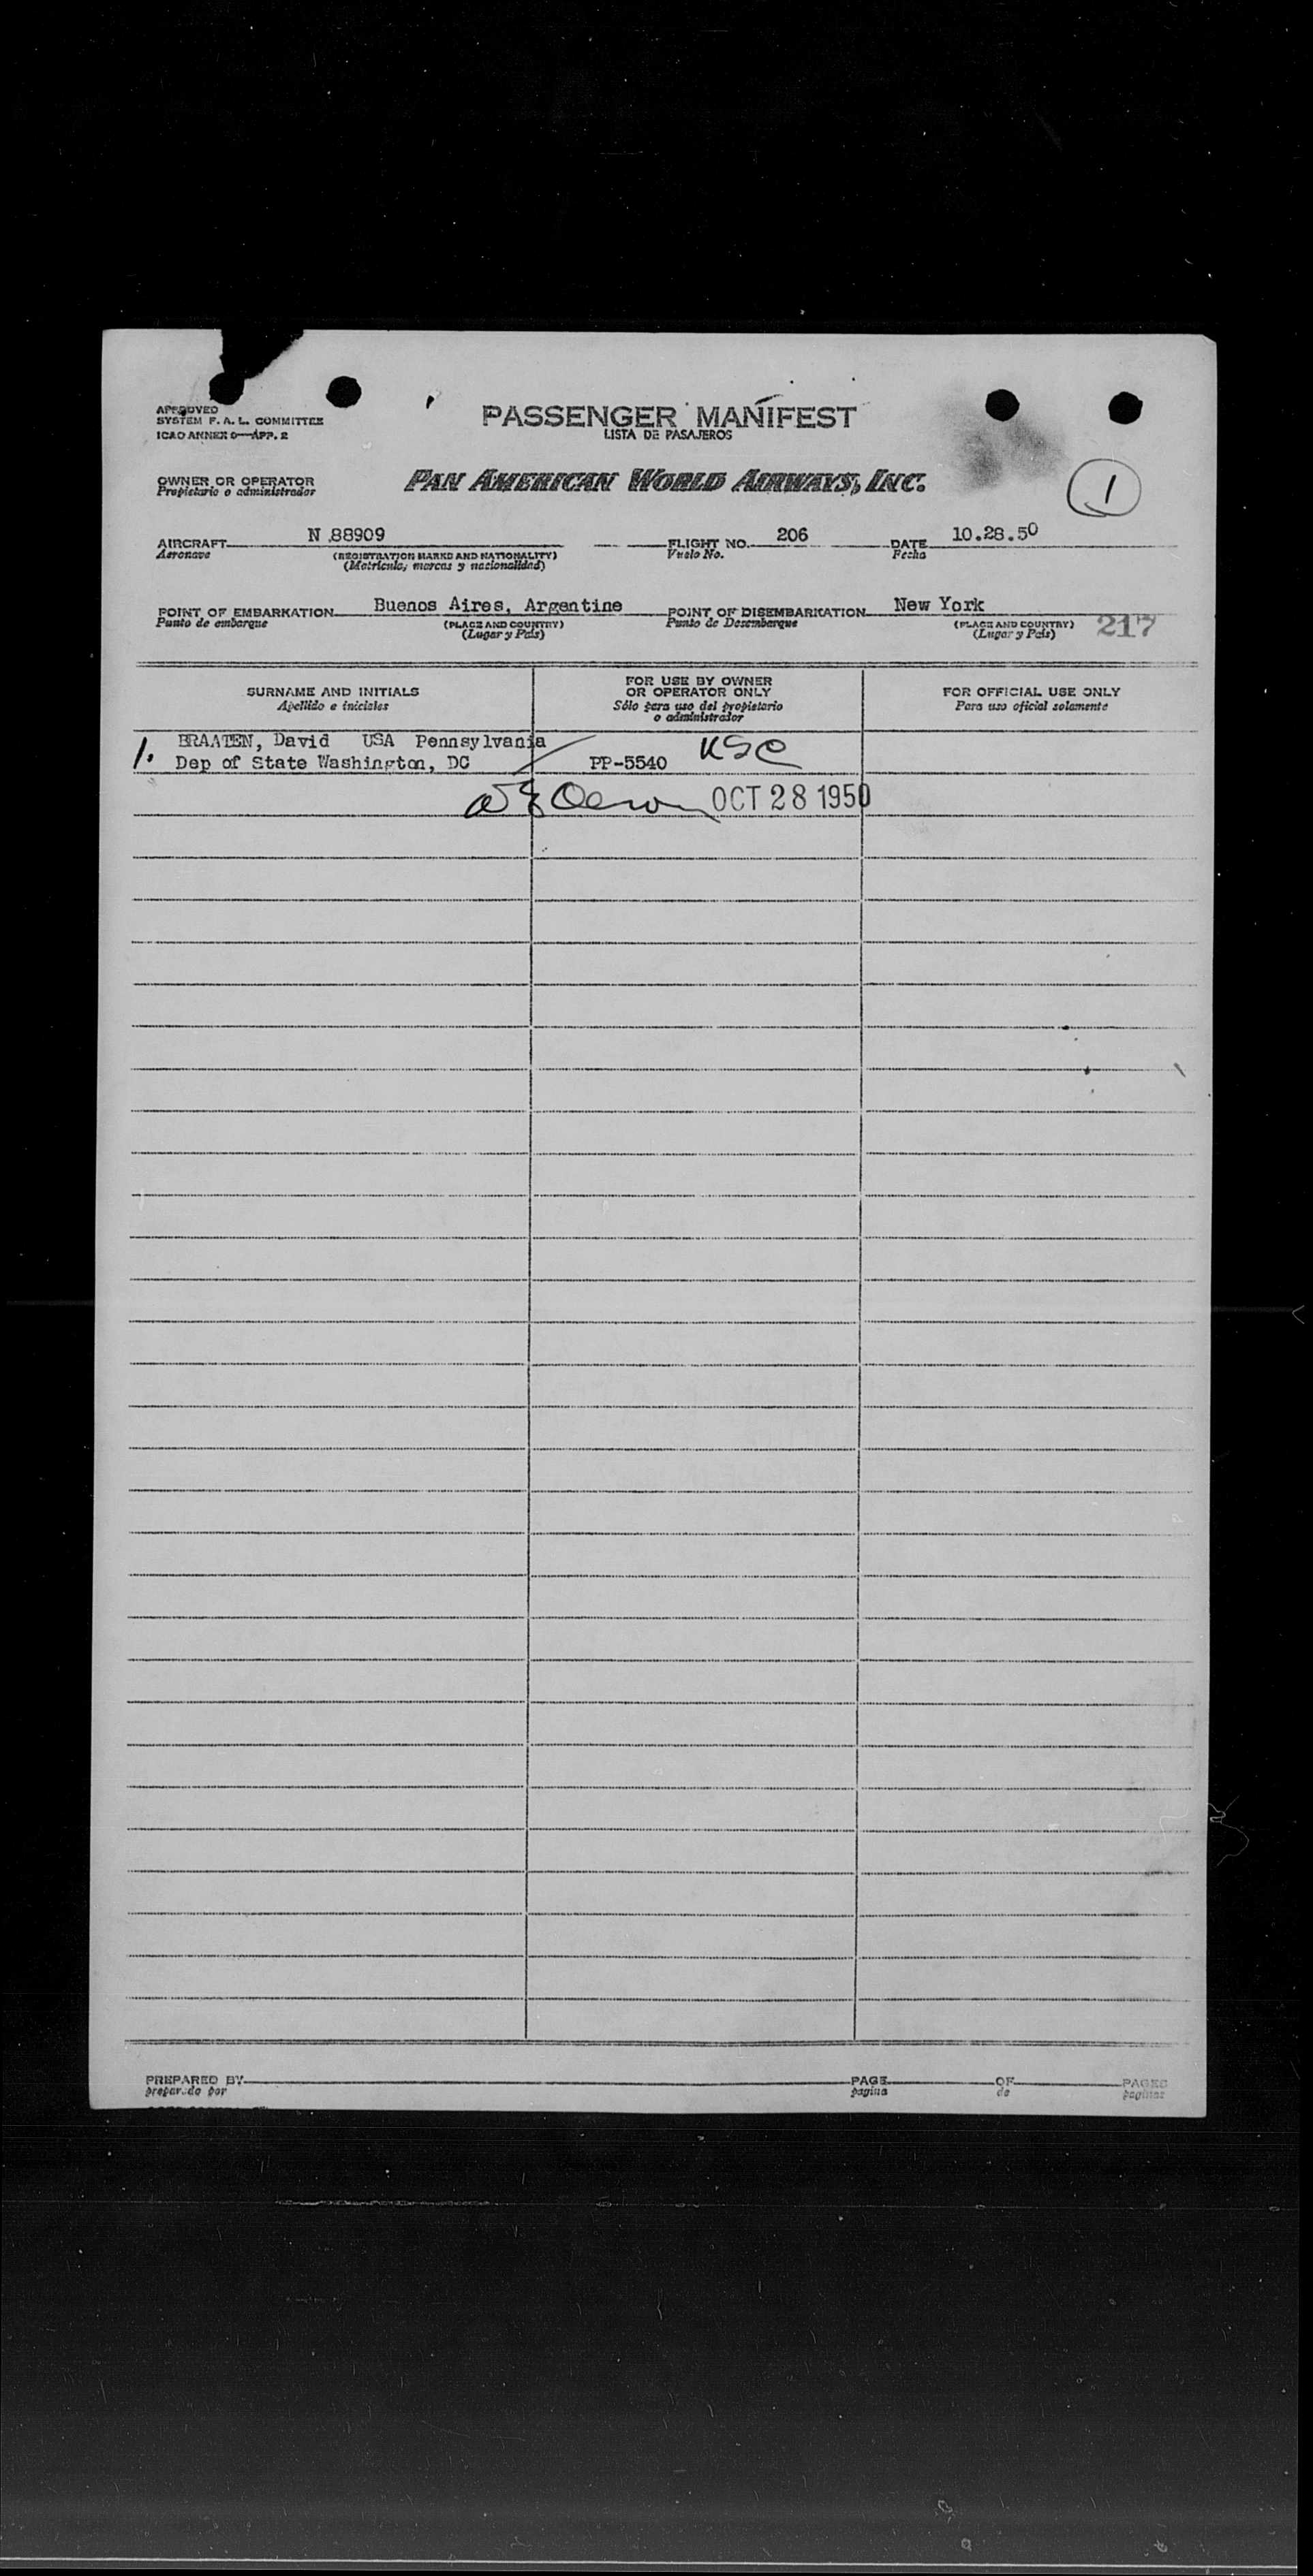 APPROVED
SYSTEM F. A. L. COMMITTEE
ICAO ANNEX 9—APP. 2
PASSENGER MANIFEST
LISTA DE PASAJEROS
OWNER OR OPERATOR
Propietario o administrador
PAN AMERICAN WORLD AIRWAYS, INC.
1
AIRCRAFT N 88909 FLIGHT NO. 206 DATE 10.28.50
Aeronave (REGISTRATION MARKS AND NATIONALITY) Vuelo No. Fecha
(Matricula, marcas y nacionalidad)
POINT OF EMBARKATION Buenos Aires, Argentine POINT OF DISEMBARKATION New York
Punto de embarque (PLACE AND COUNTRY) Punto de Desembarque (PLACE AND COUNTRY) 217
(Lugar y País) (Lugar y País)
SURNAME AND INITIALS
Apellido e iniciales
FOR USE BY OWNER
OR OPERATOR ONLY
Sólo para uso del propietario
o administrador
FOR OFFICIAL USE ONLY
Para uso oficial solamente
1. BRAATEN, David USA Pennsylvania
Dep of State Washington, DC PP-5540 USC
OCT 28 1950
PREPARED BY PAGE OF PAGES
preparado por pagina de paginas